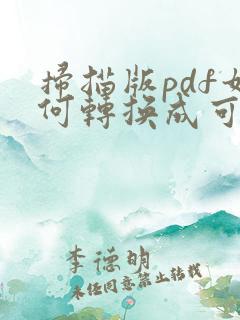 掃描版pdf如
何轉換成可
李德明
未经同意禁止转载